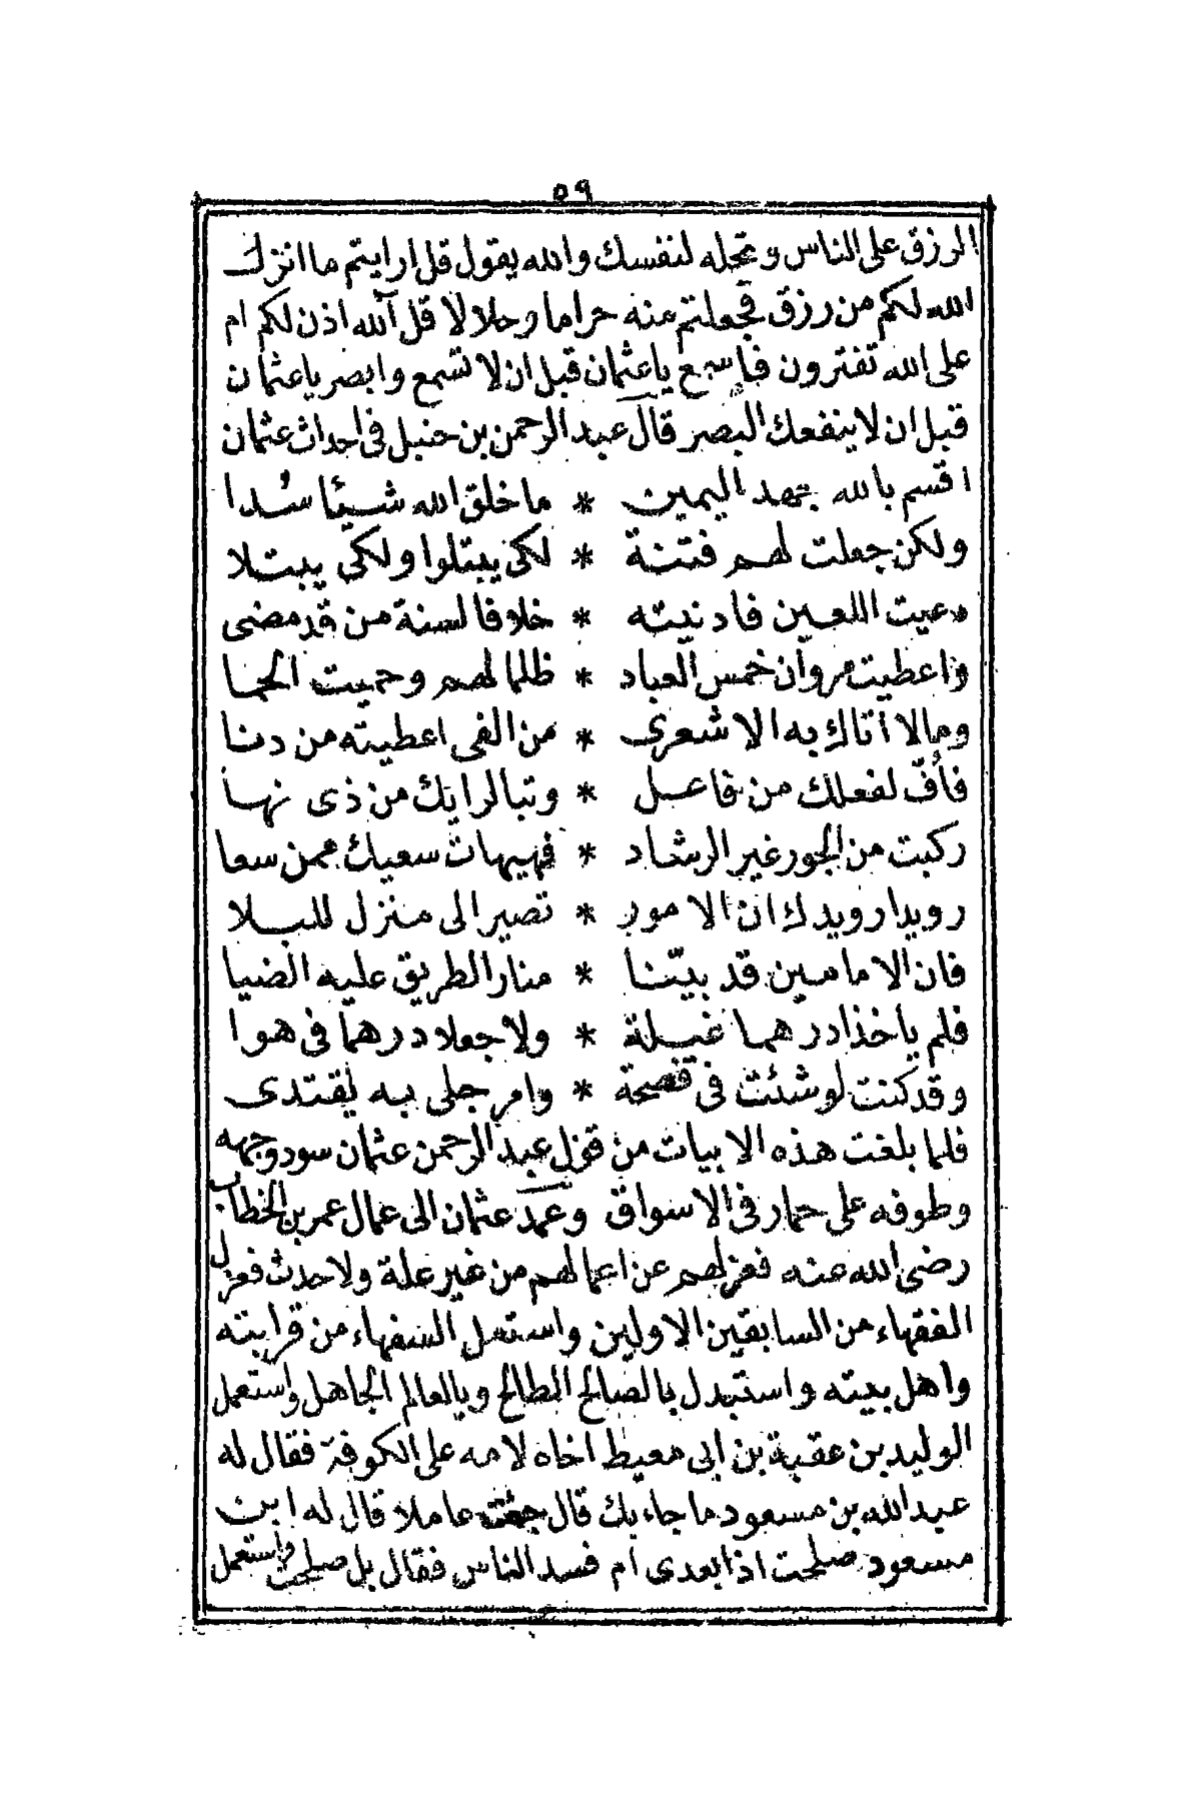 ٥٩
الرزق على الناس وتحله لنفسك والله يقول قل ارايتم ما انزل
الله لكم من رزق فجعلتم منه حراما وحلالا قل آلله اذن لكم ام
على الله تفترون فاسمع ياعثمان قبل ان لا تسمع وابصر ياعثمان
قبل ان لا ينفعك البصر قال عبد الرحمن بن حنبل فى احداث عثمان
اقسم بالله جهد اليمين * ما خلق الله شيئا سُدا
ولكن جعلت لهم فتنة * لكى يبتلوا ولكى يبتلا
دعيت اللعين فادنيته * خلافا لسنة من قد مضى
واعطيت مروان خمس العباد * ظلما لهم وحميت الحما
ومالا اتاك به الاشعرى * من الفى اعطيته من دنا
فأفّ لفعلك من فاعل * وتبا لرايك من ذى نها
ركبت من الجور غير الرشاد * فهيهات سعيك ممن سعا
رويدا رويدك ان الامور * تصير الى منزل للبلا
فان الامامين قد بيّنا * منار الطريق عليه الضيا
فلم ياخذا درهما غيلة * ولا جعلا درهما فى هوا
وقد كنت لو شئت فى فصحة * وامر جلى به يقتدى
فلما بلغت هذه الابيات من قول عبد الرحمن عثمان سود وجهه
وطوفه على حمار فى الاسواق وعمد عثمان الى عمال عمر بن الخطاب
رضى الله عنه فعزلهم عن اعمالهم من غير علة ولا حدث فعزل
الفقهاء من السابقين الاولين واستعمل السفهاء من قرابته
واهل بيته واستبدل بالصالح الطالح وبالعالم الجاهل واستعمل
الوليد بن عقبة بن ابى معيط اخاه لامه على الكوفة فقال له
عبد الله بن مسعود ما جاء بك قال جئت عاملا قال له ابن
مسعود صلحت اذا بعدى ام فسد الناس فقال بل صلحت واستعمل